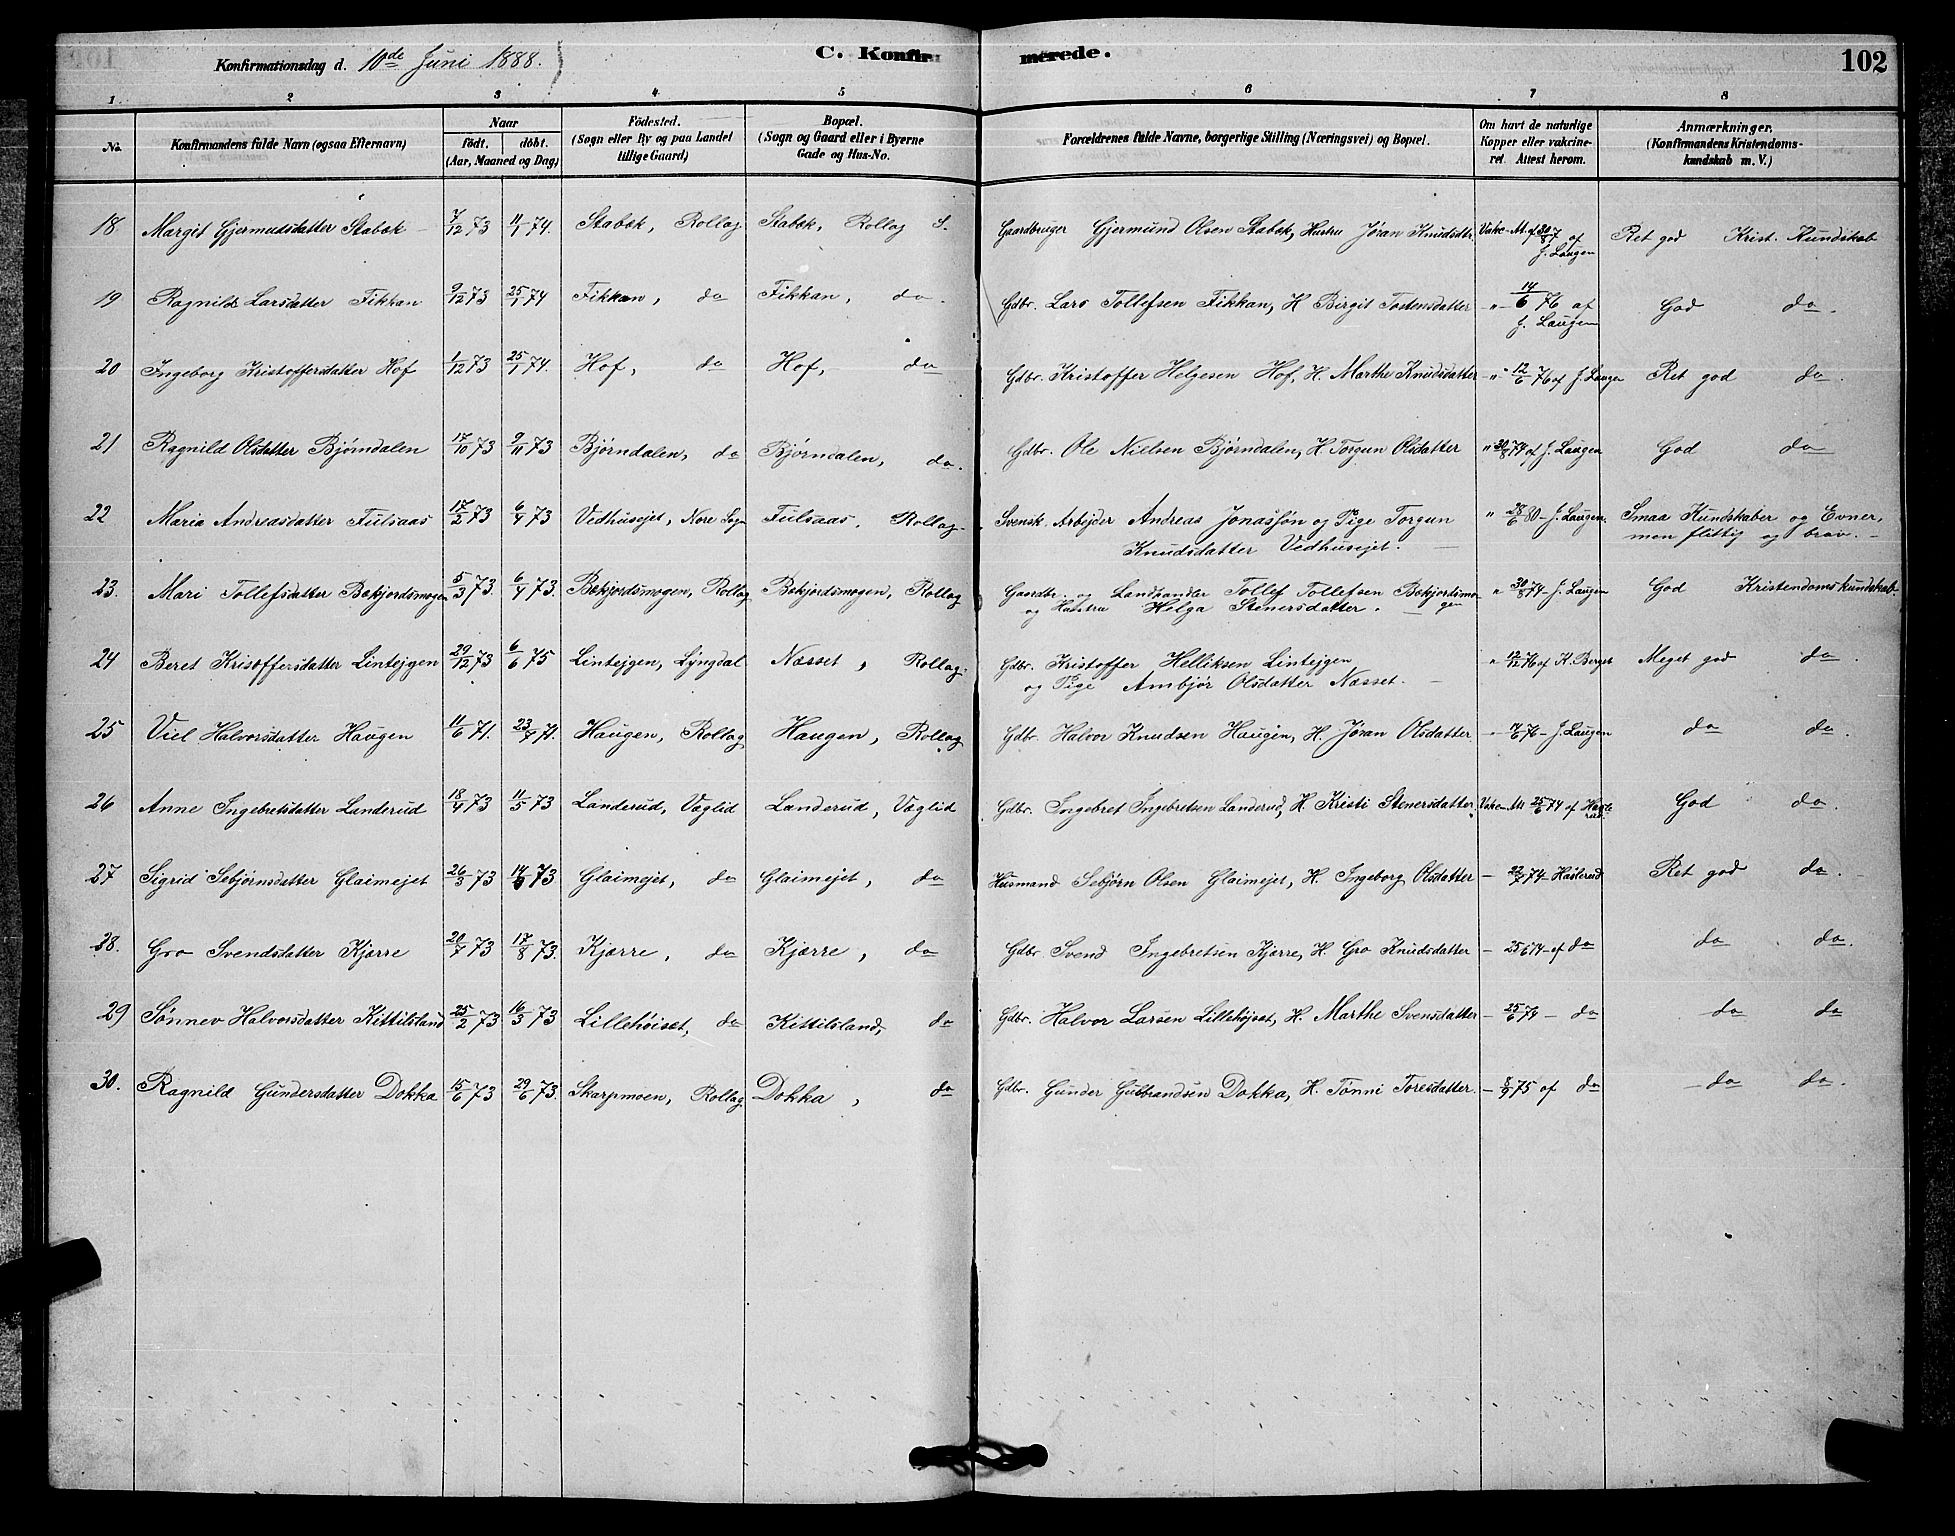 Konfirmationsdag d. 10de Juni 1888.
C. Konfirmerede.
102
1 2 3 4 5 6 7 8
No. Konfirmandens fulde Navn (ogsaa Efternavn) Naar født. døbt. (Aar, Maaned og Dag) Fødested. (Sogn eller By og paa Landet tillige Gaard) Bopæl. (Sogn og Gaard eller i Byerne Gade og Hus-No. Forældrenes fulde Navne, borgerlige Stilling (Næringsvei) og Bopæl. Om havt de naturlige Kopper eller vakcineret. Attest herom. Anmærkninger. (Konfirmandens Kristendomskundskab m. V.)
18 Margit Gjermudsdatter Stabæk 7/12 73 11/1 74. Stabæk, Rollag Stabæk, Rollag S. Gaardbruger Gjermund Olsen Stabæk, Hustru Jøran Knudsdtr. Vakc. At. af J. Laugen Ret god Krist. Kundskab
19 Ragnild Larsdatter Fikkan 9/12 73 25/1 74 Fikkan, do Fikkan, do. Gdbr. Lars Tollefsen Fikkan, H Birgit Tostensdatter -"- 14/6 76 af J. Laugen God do.
20 Ingeborg Kristoffersdatter Hof 1/12 73 25/1 74. Hof, do Hof, do Gdbr. Kristoffer Helgesen Hof, H. Marthe Knudsdatter -"- 12/6 76 af J. Laugen Ret god do.
21 Ragnild Olsdatter Bjørndalen 17/10 73 9/11 73 Bjørndalen, do Bjørndalen, do. Gdbr. Ole Nielsen Bjørndalen, H Torgun Olsdatter " 20/8 74 af J. Laugen God do
22 Maria Andreasdatter Fulsaas 17/2 73 6/4 73 Vedhusejet, Nore Sogn Fulsaas, Rollag. Svensk Arbejder Andreas Jonasson og Pige Torgun Knudsdatter Vedhusejet. " 28/6 80 - J. Laugen. Smaa Kundskaber og Evner, men flittig og brav.
23. Mari Tollefsdatter Bækjordsmogen 5/3 73. 6/4 73. Bækjordsmogen, Rollag Bækjordsmogen, Rollag Gaardbr. og Landhandler Tollef Tollefsen Bækjordsmogen og Hustru Helga Stenersdatter. " 20/8 74 - J. Laugen God Kristendomskundskab.
24 Beret Kristoffersdatter Lintejgen 29/12 73 6/6 75 Lintejgen, Lyngdal Næsset, Rollag. Gdbr. Kristoffer Helliksen Lintejgen og Pige Ambjør Olsdatter Næsset. " 12/12 76 af K. Berget Meget god do.
25 Viel Halvorsdatter Haugen 11/6 71. 23/7 71. Haugen, Rollag Haugen, Rollag Gdbr. Halvor Knudsen Haugen, H. Jøran Olsdatter - 14/6 76 - J. Laugen do do.
26 Anne Ingebretsdatter Landerud 18/4 73 11/5 73 Landerud, Væglid Landerud, Væglid Gdbr. Ingebret Ingebretsen Landerud, H Kristi Stenersdatter, Vakc. At 25/6 74 af Haslerud God do.
27 Sigrid Sebjørnsdatter Glaimejet 26/3 73 14/ 73 Glaimejet, do Glaimejet, do Husmand Sebjørn Olsen Glaimejet, H. Ingeborg Olsdatter - 22/7 74 - Haslerud Ret god do.
28. Gro Svendsdatter Kjærre 20/7 73 17/8 73. Kjærre, do Kjærre, do Gdbr. Svend Ingebretsen Kjærre, H. Gro Knudsdatter - 25 6 74 - af do do do.
29 Sønnev Halvorsdatter Kittilsland 25/2 73 16/3 73 Lillehøiset, do Kittilsland, do Gdbr. Halvor Larsen Lillehøjset, H. Marthe Svensdatter - 25/6 74 - do do do
30. Ragnild Gundersdatter Dokka 15/6 73 29/6 73. Skarpmoen, Rollag Dokka, do Gdbr. Gunder Gulbrandsen Dokka, H. Tønni Toresdatter. - 8/9 75 af do do do.